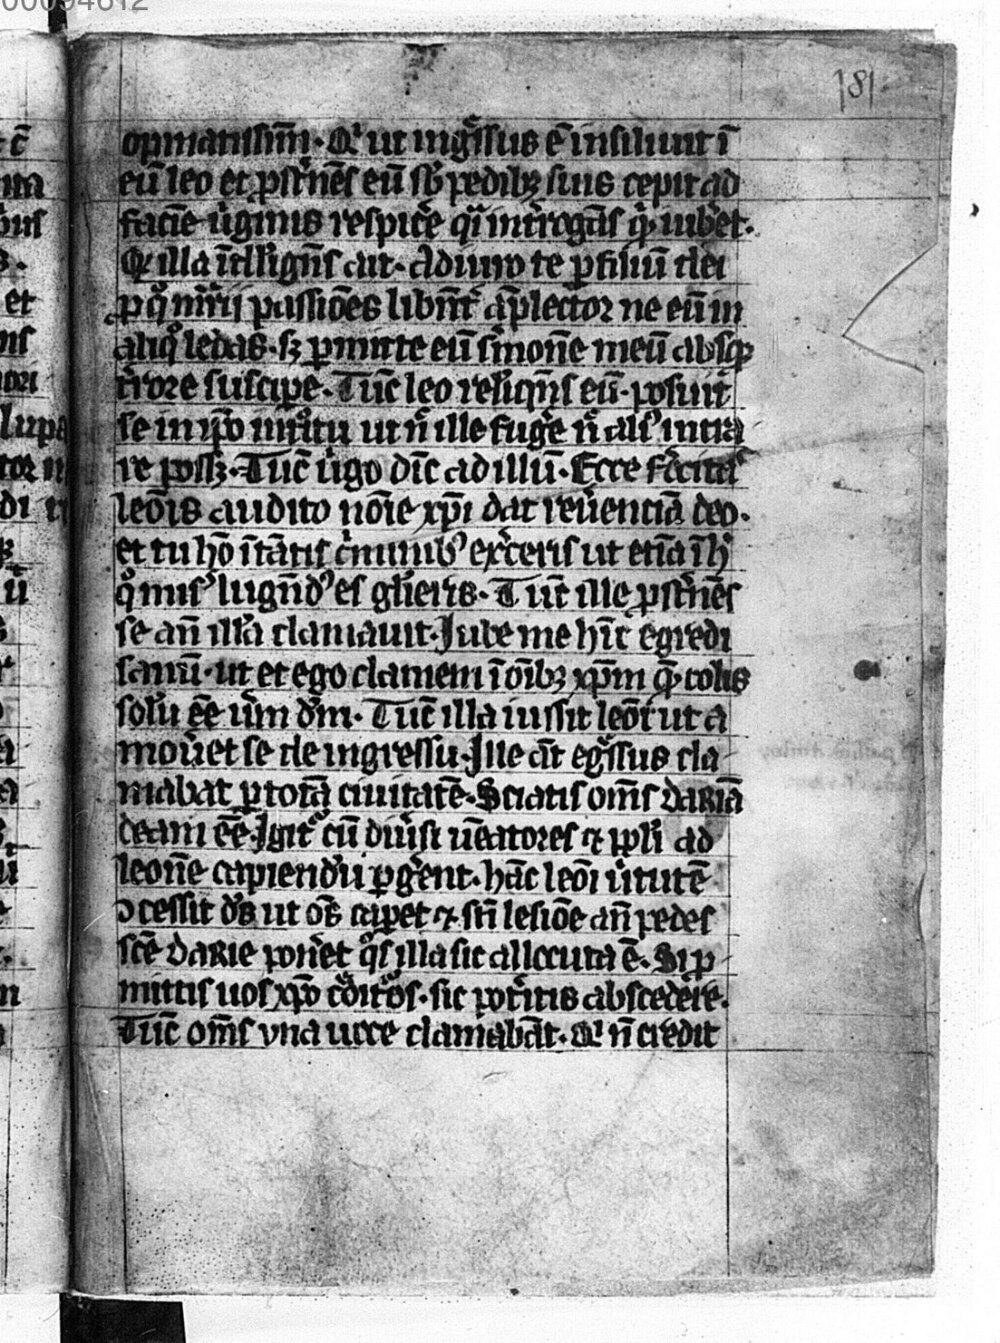 181
opinatissim̄. Q̇ ut ingͥssus ē insiliuit ī
eū leo et ꝓst̾nēs eū sb̾ pedibꝫ suis cepit ad
faciē u̾ginis respice̾ qͣi int̾rogās qͩ iub̾et.
Q illa ītell̾igēns ait. Adiuro te ꝑ filiū dei
ꝑ qͦ mr̄ij passiōes libēnt̾ āplector ne eū in
aliqͦ ledas. sꝫ ꝑmitte eū s̾monē meū absqꝫ
t̾rore suscipe. Tūc leo reliqͥns eū. posuit
se in ip̄o int̾itu ut n̄ ille fuge̾ n̄ aliꝰ intra
re possꝫ. Tūc u̾go dīc ad illū. Ecce f̾citas
leōis audito nōīe xp̄i dat reu̾entiā deo.
et tu hō
qͦ mis̾ lugēndꝰ es gl̾ieris. Tūc ille ꝓst̾nēs
se an̄ illā clamauit. Jube me hīc egredi
sanū. ut et ego clamem ī oībꝫ xp̄m quē colis
solū ēē u̾m dm̄. Tūc illa iussit leōi ut a
mou̾et se de ingressu. Jlle aūt egͥssus cla
mabat ꝑ totā ciuitatē. Sciatis om̄s dariā
deam ēē. Jgitͬ cū diu̾si uēatores ⁊ ppl̾i ad
leonē capiendū ꝑge̾nt. hāc leōi u̾tutē
ↄcessit ds̄ ut oēs cap̾et ⁊ sn̄ lesiōe an̄ pedes
scē darie pon̾et qͦs illa sic allocuta ē. Si ꝑ
mittis uos xp̄o cͣditͦos. sic pot̾itis abscedere.
Tūc om̄s vna uoce clamabāt. Q̇ n̄ credit